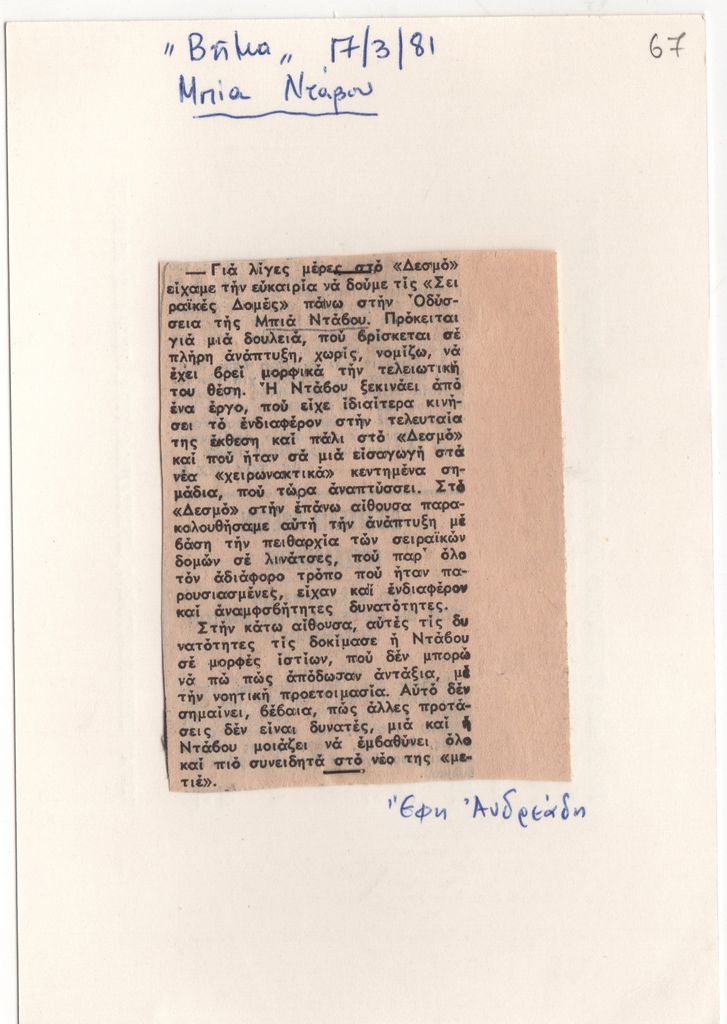 "Βῆμα„ 17/3/81
67
Μπία Ντάβου
— Γιά λίγες μέρες στό «Δεσμό»
εἴχαμε τήν εὐκαιρία νά δοῦμε τίς «Σει
ραϊκές Δομές» πάνω στήν Ὀδύσ-
σεια τῆς Μπιά Ντάβου. Πρόκειται
γιά μιά δουλειά, πού βρίσκεται σέ
πλήρη ἀνάπτυξη, χωρίς, νομίζω, νά
ἔχει βρεῖ μορφικά τήν τελειωτική
του θέση. Ἡ Ντάβου ξεκινάει ἀπό
ἕνα ἔργο, πού εἶχε ἰδιαίτερα κινή-
σει τό ἐνδιαφέρον στήν τελευταία
της ἔκθεση καί πάλι στό «Δεσμό»
καί πού ἦταν σά μιά εἰσαγωγή στά
νέα «χειρωνακτικά» κεντημένα ση-
μάδια, πού τώρα ἀναπτύσσει. Στό
«Δεσμό» στήν ἐπάνω αἴθουσα παρα-
κολουθήσαμε αὐτή τήν ἀνάπτυξη μέ
βάση τήν πειθαρχία τῶν σειραϊκῶν
δομῶν σέ λινάτσες, πού παρ' ὅλο
τόν ἀδιάφορο τρόπο πού ἦταν πα-
ρουσιασμένες, εἶχαν καί ἐνδιαφέρον
καί ἀναμφσβήτητες δυνατότητες.
Στήν κάτω αἴθουσα, αὐτές τίς δυ
νατότητες τίς δοκίμασε ἡ Ντάβου
σέ μορφές ἱστίων, πού δέν μπορῶ
νά πῶ πώς ἀπόδωσαν ἀντάξια, μέ
τήν νοητική προετοιμασία. Αὐτό δέν
σημαίνει, βέβαια, πώς ἄλλες προτά-
σεις δέν εἶναι δυνατές, μιά καί ἡ
Ντάβου μοιάζει νά ἐμβαθύνει ὅλο
καί πιό συνειδητά στό νέο της «με-
τιέ».
Ἔφη Ἀνδρεάδη